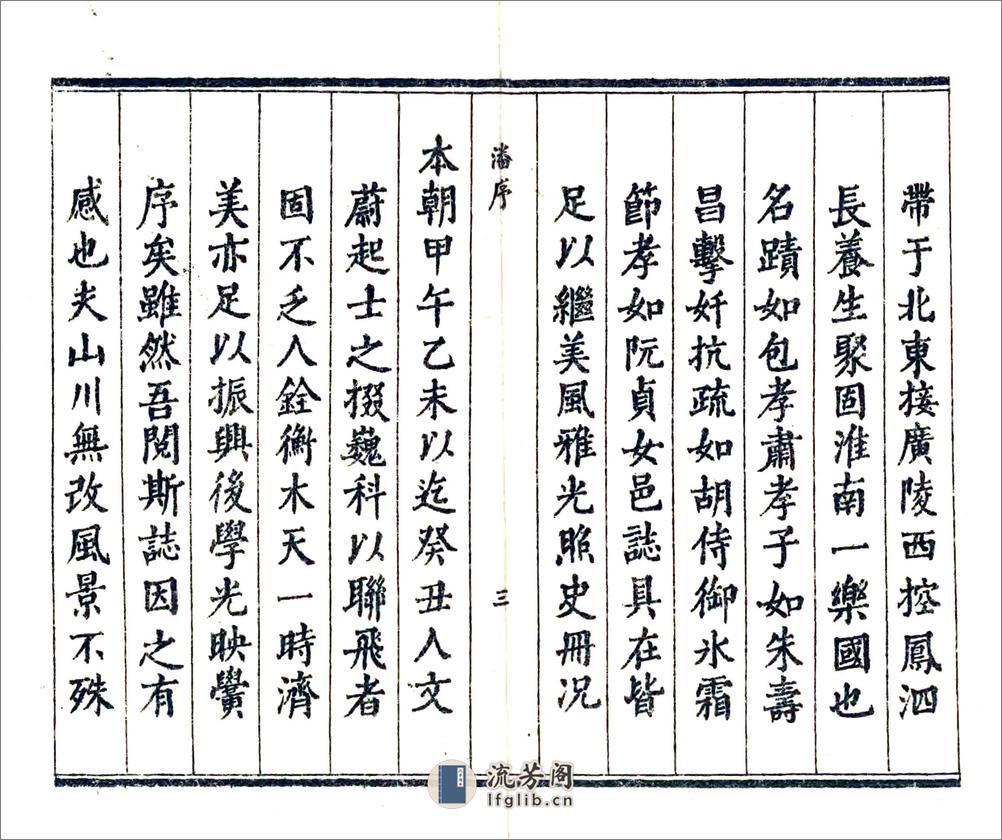 帶于北東接廣陵西控鳳泗
長養生聚固淮南一樂國也
名蹟如包孝肅孝子如朱壽
昌擊奸抗疏如胡侍御氷霜
節孝如阮貞女邑誌具在皆
足以繼美風雅光照史冊况
潘序
三
本朝甲午乙未以迄癸丑人文
蔚起士之掇巍科以聯飛者
固不乏人銓衡木天一時濟
美亦足以振興後學光映黌
序矣雖然吾閱斯誌因之有
感也夫山川無改風景不殊
流芳阁
lfglib.cn